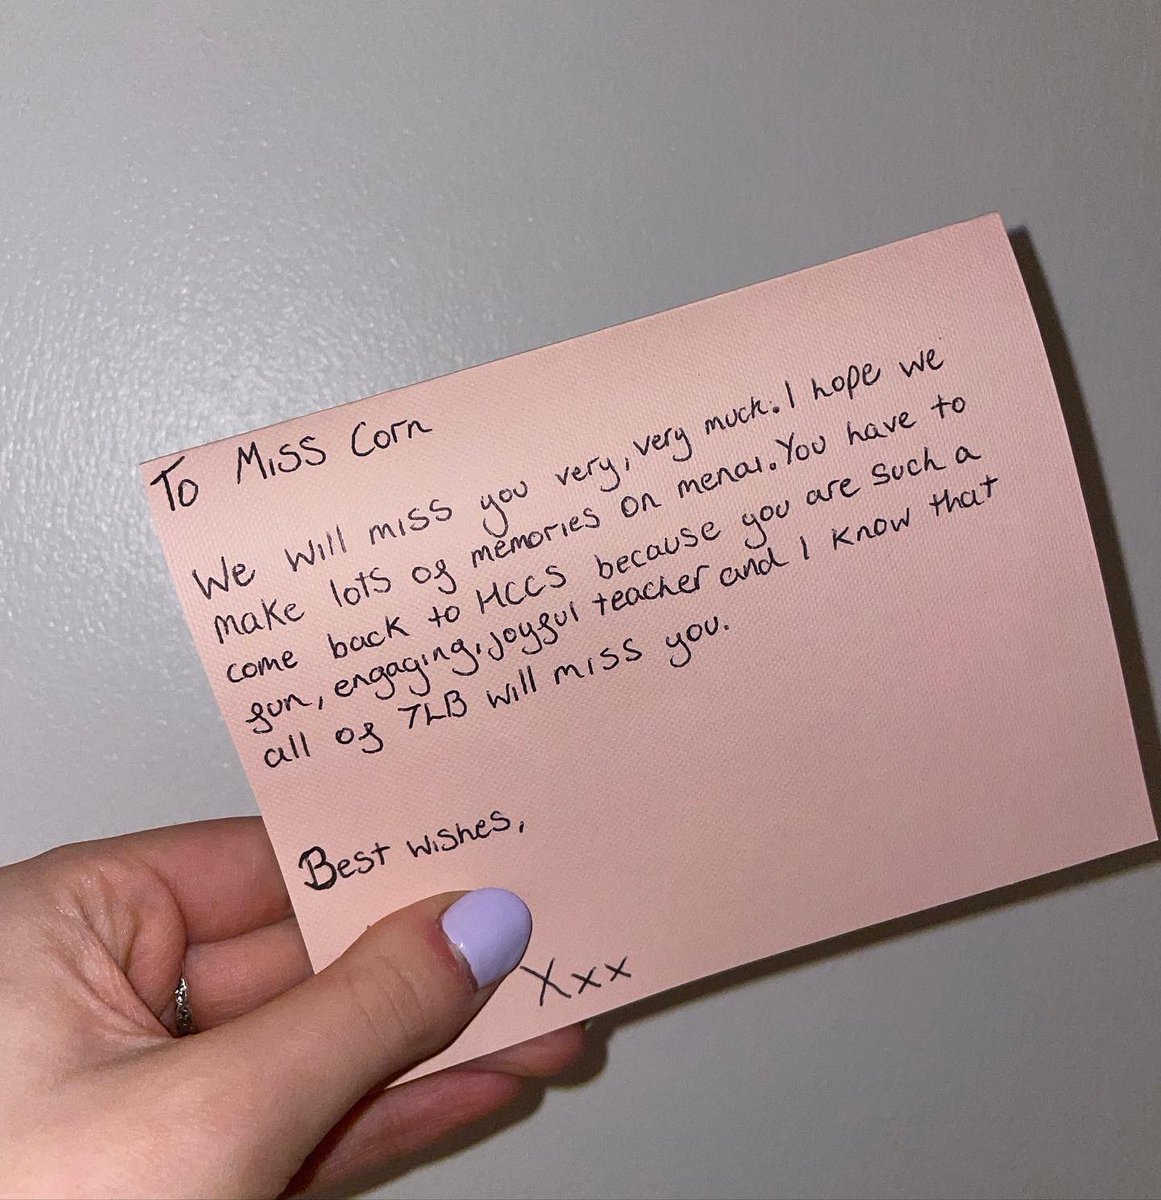 To Miss Corn
We will miss you very, very much. I hope we
make lots of memories on menai. You have to
come back to HCCS because you are such a
fun, engaging, joyful teacher and I know that
all of 7LB will miss you.
Best wishes,
Xxx